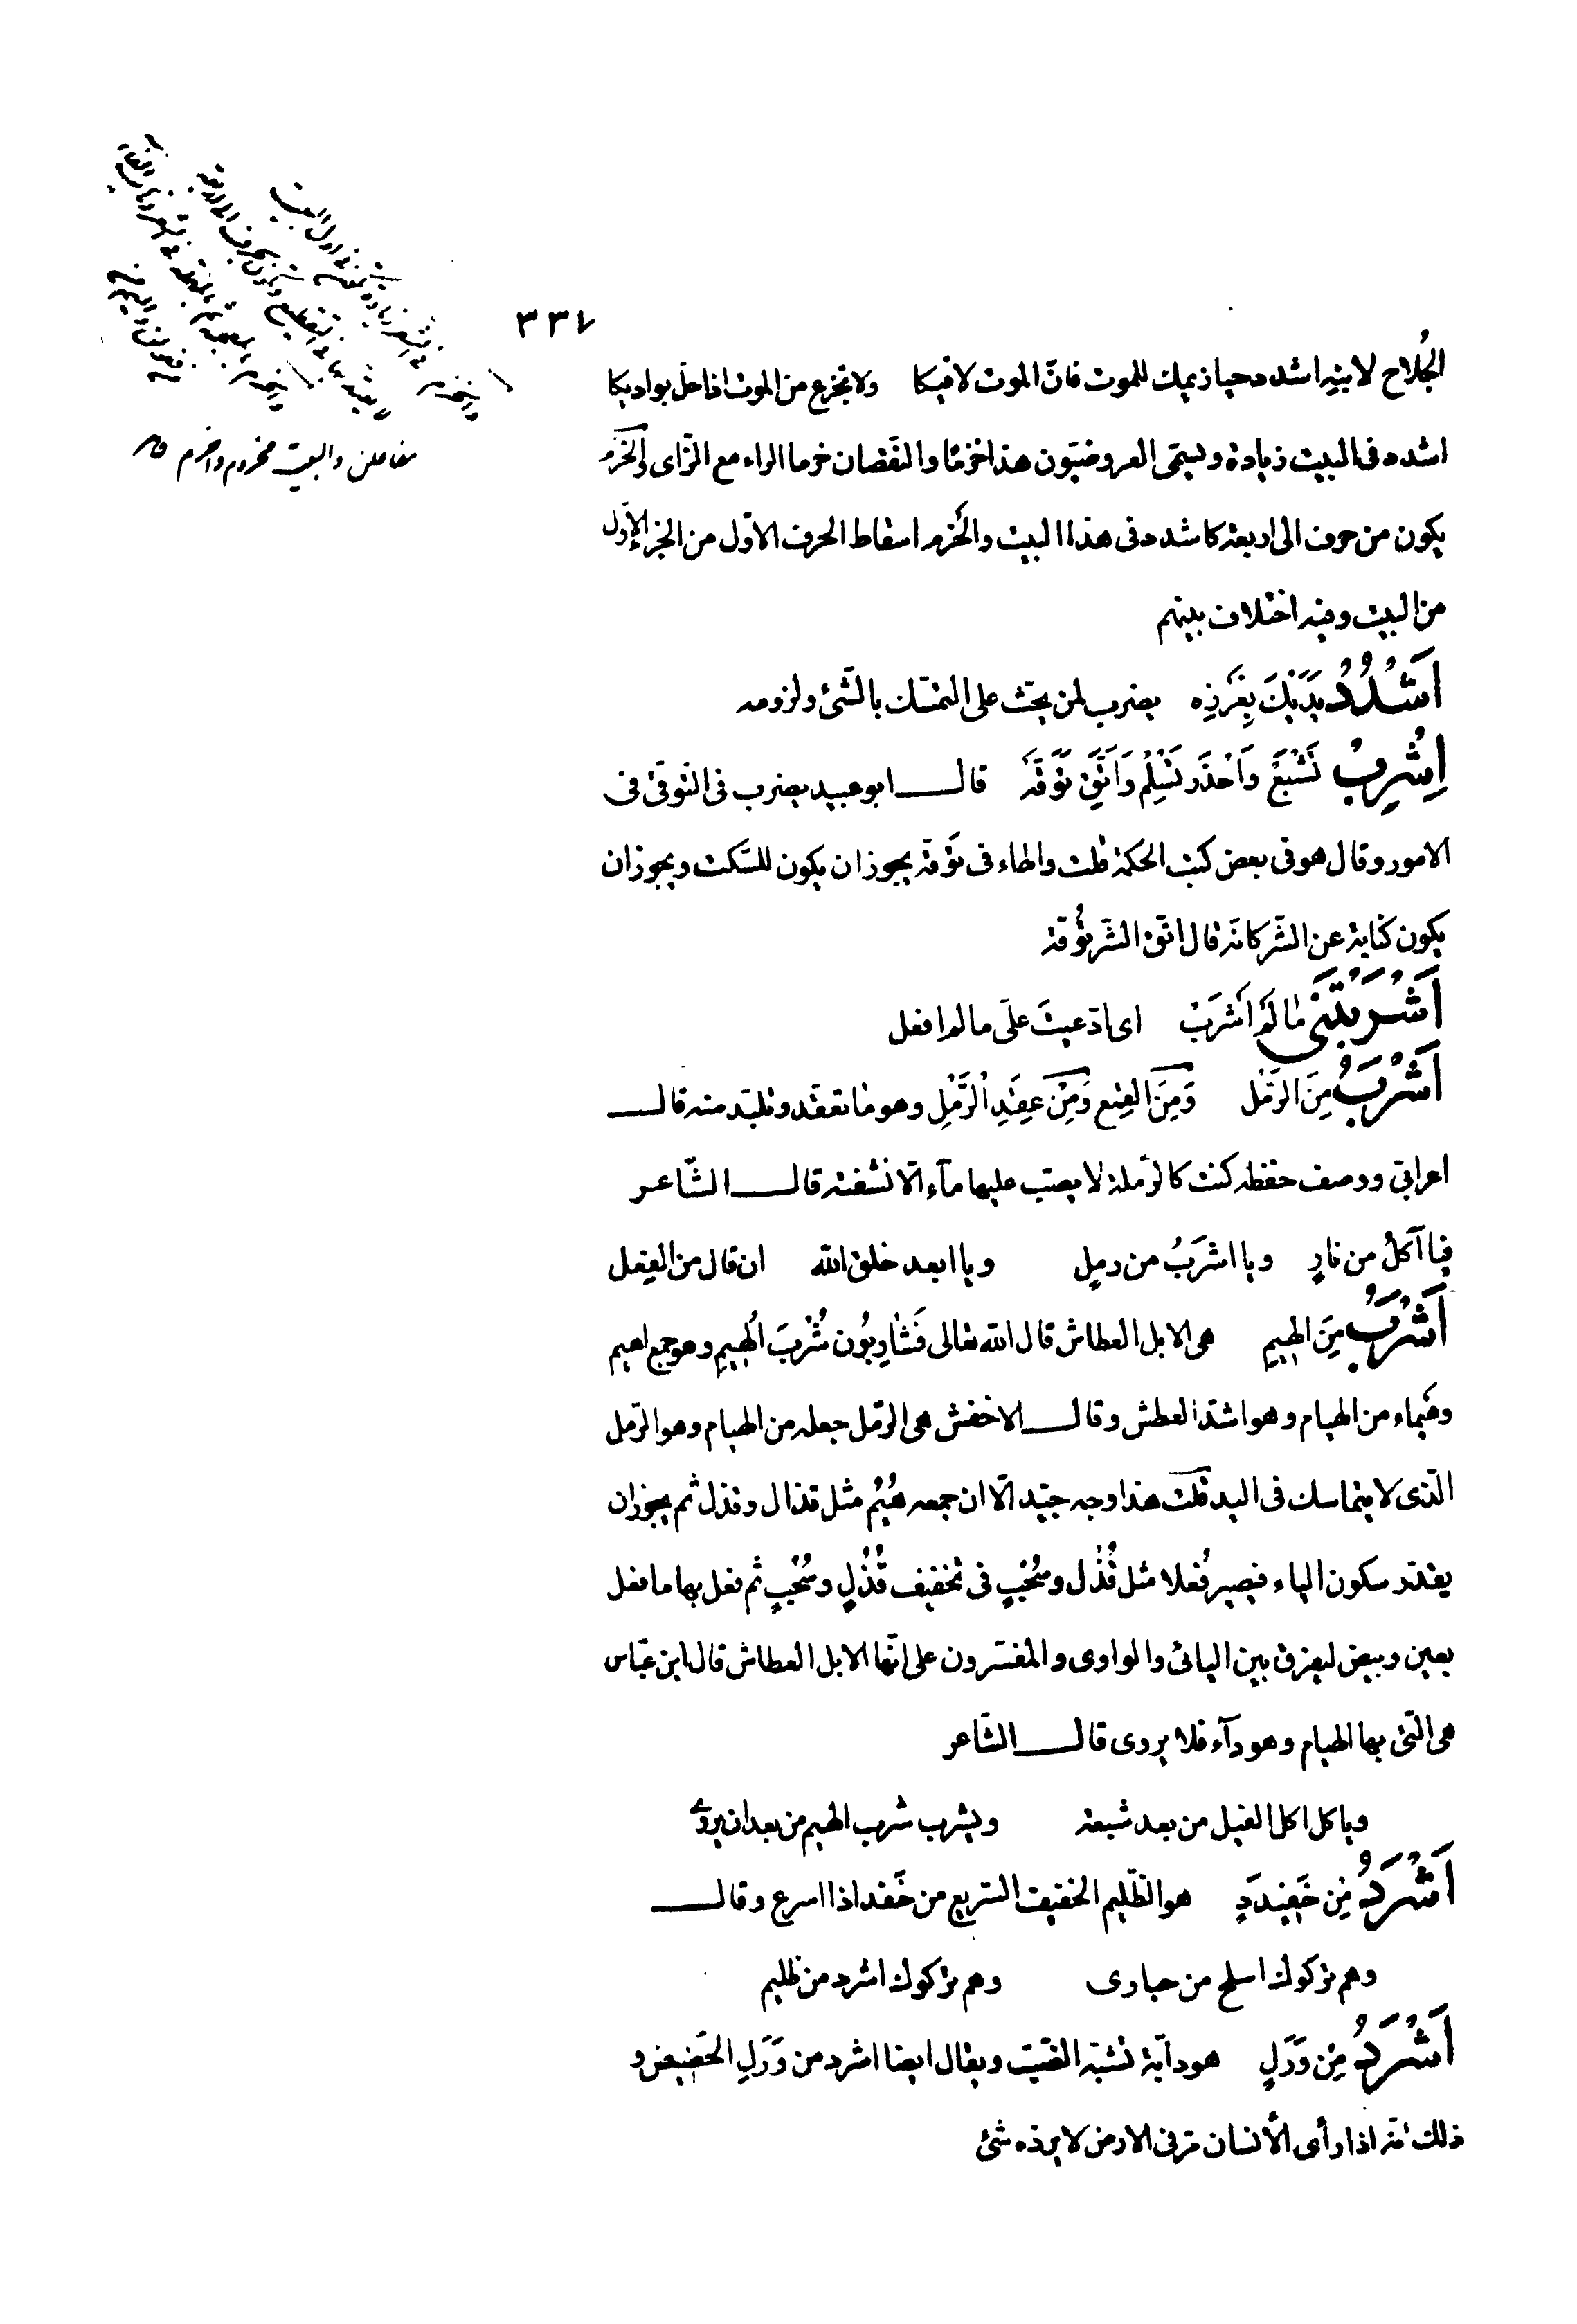 ٣٣٧
الجُلاح لابنِه اشدد حيازيمك للموت فانّ الموت لاقيكا ولا تجزع من الموت اذا حلّ بواديكا
اشدد فى البيت زيادة ويسمّى العروضيّون هذا خزمًا والنقصان خرما الراء مع الزّاى والخَزم
يكون من حرف الى اربعة كاشدد فى هذا البيت والخَرم اسقاط الحرف الاوّل من الجزء الاوّل
من البيت وفيه اختلاف بينهم
اُشْدُدْ يَدَيْكَ بِغَرْزِه يضرب لمن يحثّ على التمسّك بالشّئ ولزومه
اِشْرِبْ تَشْبَعْ وَاحْذَر تَسْلَمْ وَاتَّقِ تُوقَهْ قال ابو عبيد يضرب فى التّوقّى فى
الامور وقال هو فى بعض كتب الحكمة قلت والهاء فى تُوقَهْ يجوز ان يكون للسّكت ويجوز ان
يكون كناية عن الشّر كانّه قال اتق الشّر تُوقَهْ
اَشْرَبْتَنى مٰا لَمْ اَشْرَبْ اى ادّعيتَ علىّ ما لم افعل
اَشْرَبُ مِنَ الرَّمْل وَمِنَ القِمَع وَمِنْ عَقِدِ الرَّمْلِ وهو ما تعقّد وتلبّد منه قال
اعرابىّ ووصف حفظه كنت كالرّملة لا يصبّ عليها مآء الّا نشفته قال الشّاعر
فيا آكلُ من نارٍ ويا اشرَبُ من رملٍ ويا ابعد خلق اللّه ان قال من الفِعل
اَشْرَبُ مِنَ الهِيمِ هى الابل العطاش قال اللّه تعالى فَشٰارِبُون شُرْبَ الْهِيمِ وهو جمع اهيم
وهَيماء من الهيام وهو اشدّ العطش وقال الاخفش هى الرّمل جعله من الهيام وهو الرّمل
الّذى لا يتماسك فى اليد قلت هذا وجه جيّد الّا ان جمعه هُيُم مثل قذال وقذل ثم يجوز ان
يقدّر سكون الياء فيصير فُعلا مثل قُذْل وسُحْبٍ فى تخفيف قُذُلٍ وسُحُبٍ ثم فعل بها ما فعل
بعين وبيض ليفرق بين اليائى والواوى والمفسّرون على انّها الابل العطاش قال ابن عبّاس
هى الّتى بها الهيام وهو دآء فلا يروى قال الشّاعر
ويأكل اكل الفيل من بعد شبعة ويشرب شرب الهيم من بعد ان يروى
اَشْرَدُ مِن خَفَيْدَدٍ هو الظّليم الخفيف السّريع من خَفَد اذا اسرع وقال
وهم تركوك اسلح من حبارى وهم تركوك اشرد من ظليم
اَشْرَدُ مِن وَرَلٍ هو دآبّة تشبّه الضّبّ ويقال ايضا اشرد من وَرَلِ الحَضيض و
ذلك انّه اذا رأى الأنسان مرّ فى الارض لا يردّه شئ
مفاعلن والبيت مخروم واخرم